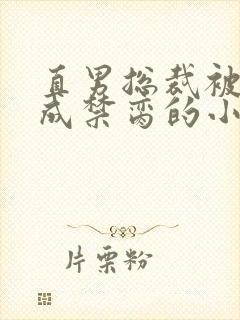 直男总裁被
成禁脔的小
片栗粉